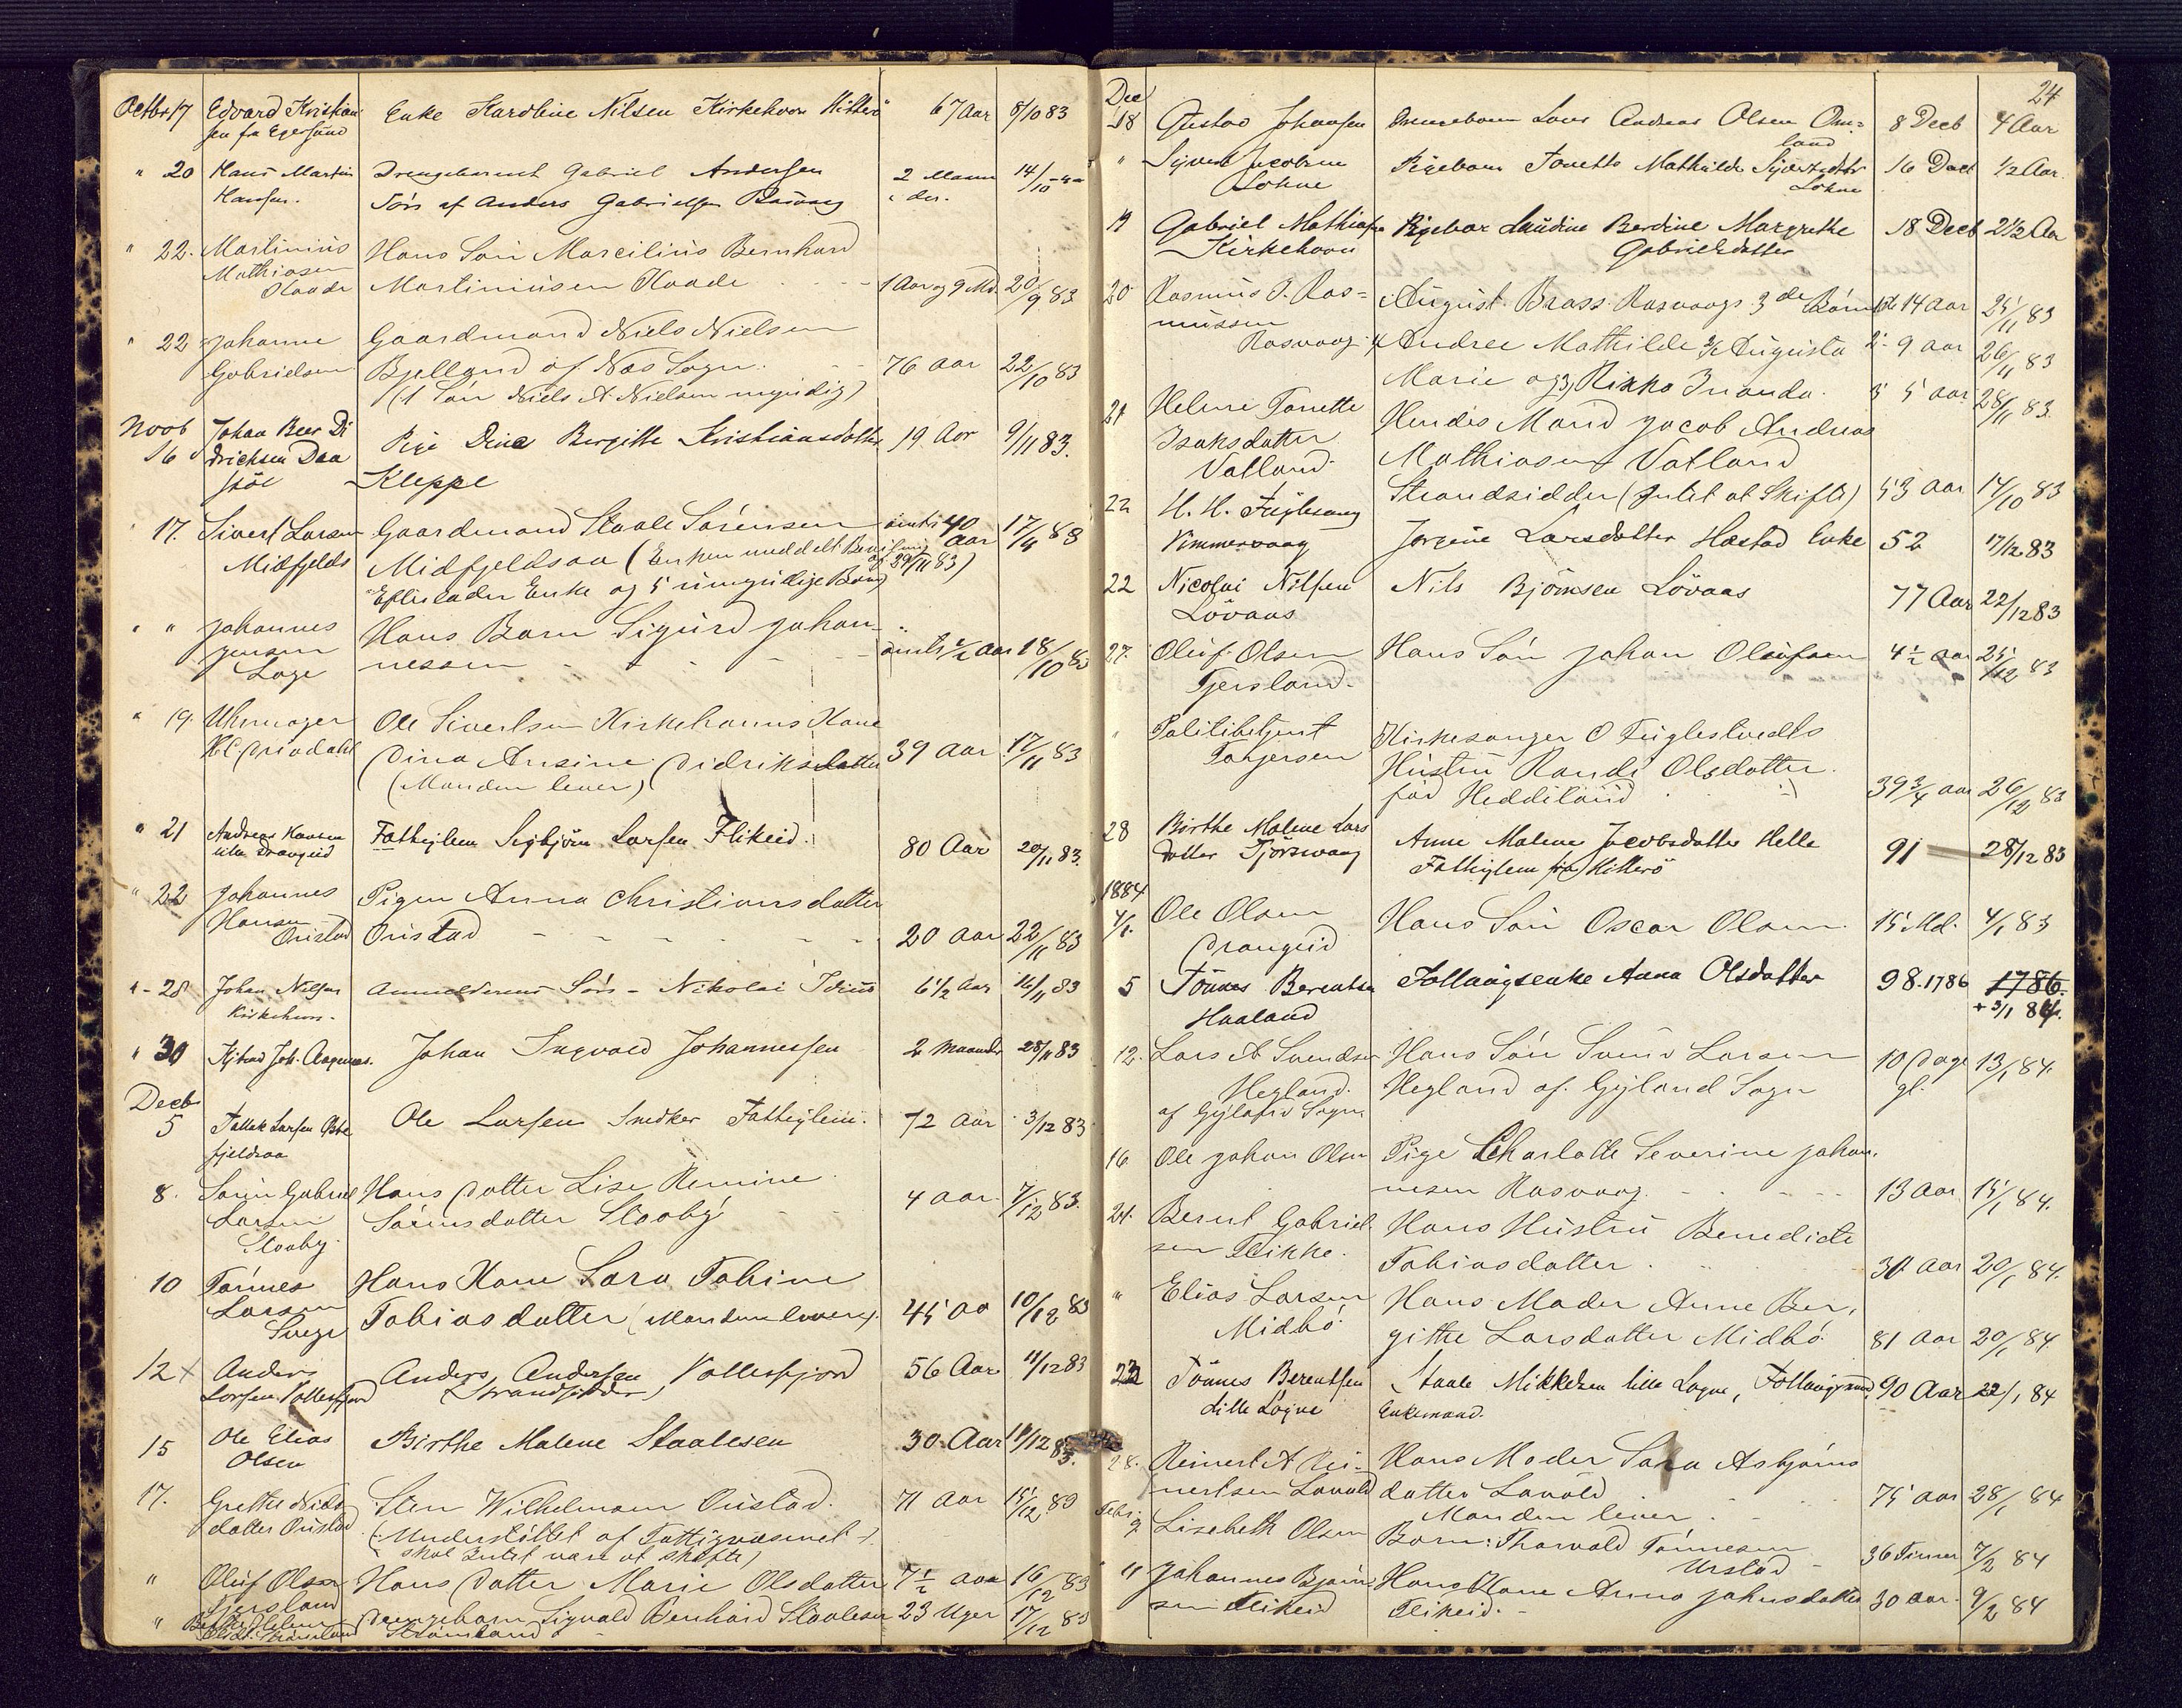 Octbr 17 Edvard Kristian Enke Karoline Nilsen Kirkehavn Hitterö 67 Aar 8/10 83
sen fa Egersund
" 20 Hans Martin Drengebarnet Gabriel Andersen 2 Maane 14/10
Hansen. Sön af Anders Gabrielsen Rasvaag der.
" 22. Martinius Hans Sön Marcilius Bernhard
Mathiasen Martiniusen Haade 1 Aar og 9 Md. 20/9 83
Haade
" 22 Johanne Gaardmand Niels Nielsen
Gabrielsen Bjelland af Næs Sogn. 76 aar 22/10 83
(1 Sön Niels A Nielsen myndig)
Novb Johan Beer Di Pige Dine Bergitte Kristiansdatter 19 Aar 9/11 83.
16 drichsen Daa Kleppe
sjöe
17. Sivert Larsen Gaardmand Staale Sörensen omtr 40 aar 17/9 83
Midfjelds Midfjeldsaa (Enken meddelt Bevilling af 29/11 83)
Efterlader Enke og 5 umyndige Börn
" " Johannes Hans Barn Sigurd Johan-
Jensen nessen omtr 1/2 aar 18/10 83
Loge
" 19. Uhrmager Ole Sivertsen Kirkehavns Kone
H.C. Drivdahl Dina Ansine Didriksdatter 39 aar 17/11 83
(Manden lever)
" 21 Andreas Hansen Fattiglem Sigbjörn Larsen Flikeid. 80 Aar 20/11 83.
lille Drangeid
" 22 Johannes Pigen Anna Christiansdatter
Hansen Öristad 20 aar 22/11 83
Öristad
" 28 Johan Nilsen Anmelderens Sön - Nikolai Idius 6 1/2 Aar 16/11 83
Kirkehavn.
" 30 Kjstad Joh. Aagenæs. Johan Ingvald Johannessen 2 Maaneder 28/11 83
Decb
5 Tallak Larsen Östre Ole Larsen Snedker Fattiglem. 72 Aar 3/12 83
fjeldsaa
8. Sörin Gabriel Hans Datter Lise Remine
Larsen Sörensdatter Stooby 4 aar 7/12 83.
Stooby
10 Tönnes Hans Kone Sara Tobine
Larsen Tobiasdatter (Manden lever) 45 aa 10/12 83
Svege
12 x Anders Anders Andersen Vollesfjord 56 Aar 11/12 83
Larsen Vollesfjord (Strandsidder)
15 Ole Elias Birthe Malene Staalesen 30 Aar 14/12 83.
Olsen
17. Grethe Niels Sten Wilhelmsen Öristad. 71 aar 15/12 83
datter Öristad (Understöttet af Fattigvæsenet -
skal Intet være at skifte)
" Oluf Olsen Hans Datter Marie Olsdatter 7 1/2 aar 16/12 83
Tjersland
" Drengebarn Sigvald Bernhard Staalesen 23 Uger 17/12 83
Strömland
24
Dec
18 Gustav Johansen Drengebarn Lars Andreas Olsen Om= 8 Decb 4 Aar
land
" Sijvert Jacobsen Pigebarn Tonette Mathilde Sijvertsdtr 16 Decb 1/2 Aar.
Lohne Lohne
19 Gabriel Mathiasen Pigebar Laudine Berdine Margrethe 18 Decb 2 1/2 Aar
Kirkehavn Gabrielsdatter
20 Rasmus J. Ras= August Brass Rasvaags 3de Börn 1) 14 aar 25/11 83
mussen
Rasvaag. Andree Mathilde 2/ Augusta 2. 9 aar 26/11 83
Marie og 3) Rikka Iranda. 3 5 aar 28/11 83.
21 Helene Tonette Hendes Mand Jacob Andreas
Isaksdatter Mathiasen Vatland
Vatland. Strandsidder (Intet at Skifte) 53 aar 14/10 83
22 H. H. Fuglevaag Jörgine Larsdatter Hæstad Enke 52 17/12 83
Vimmervaag
22 Nicolai Nilsen Nils Björnsen Lövaas 77 Aar 22/12 83
Lövaas
27. Oluf Olsen Hans Sön Johan Olufsen 4 1/2 aar 25/12 83
Tjersland.
" Politibetjent Kirkesanger O Fuglestvedts
Torgersen Hustru Randi Olsdatter.
föd Heddeland 39 3/4 aar 26/12 83
28 Birthe Malene Lars Anne Malene Jacobsdatter Helle 91 28/12 83
datter Tjörsvaag Fattiglem fra Hitterö
1884
4/1. Ole Olsen Hans Sön Oscar Olsen. 15 Md. 4/1 83
Drangeid
5 Tönnes Berentsen Follaugsenke Anna Olsdatter 98. 1786 1786.
Haaland + 3/1 84.
12. Lars A Svendsen Hans Sön Svend Larsen 10 Dage 13/1 84.
Hegland. Hegland af Gyland Sogn gl.
af Gyland Sogn
16. Ole Johan Olsen Pige Charlotte Severine Johan.
nesen Rasvaag. 13 Aar 15/1 84.
21. Bernt Gabriel. Hans Hustru Benedicte
sen Flikke. Tobiasdatter. 30 aar 20/1 84.
" Elias Larsen Hans Moder Anne Ber,
Midbö gitte Larsdatter Midbö 81 Aar 20/1 84
23 Tönnes Berentsen Staale Mikkelsen lille Logne, Follaugsmand, 90 Aar 22/1 84
Lille Logne Enkemand.
28. Reinert A Rei= Hans Moder Sara Asbjörns
nertsen Lavold datter Lavold 75 aar 28/1 84
Manden lever
Febr. 9 Lisebeth Olsen Barn: Thorvald Tönnesen 36 Timer 7/2 84
Urstad
11 Johannes Björn Hans Kone Anna Johnsdatter 30 aar. 9/2 84
sen Flikeid Flikeid.